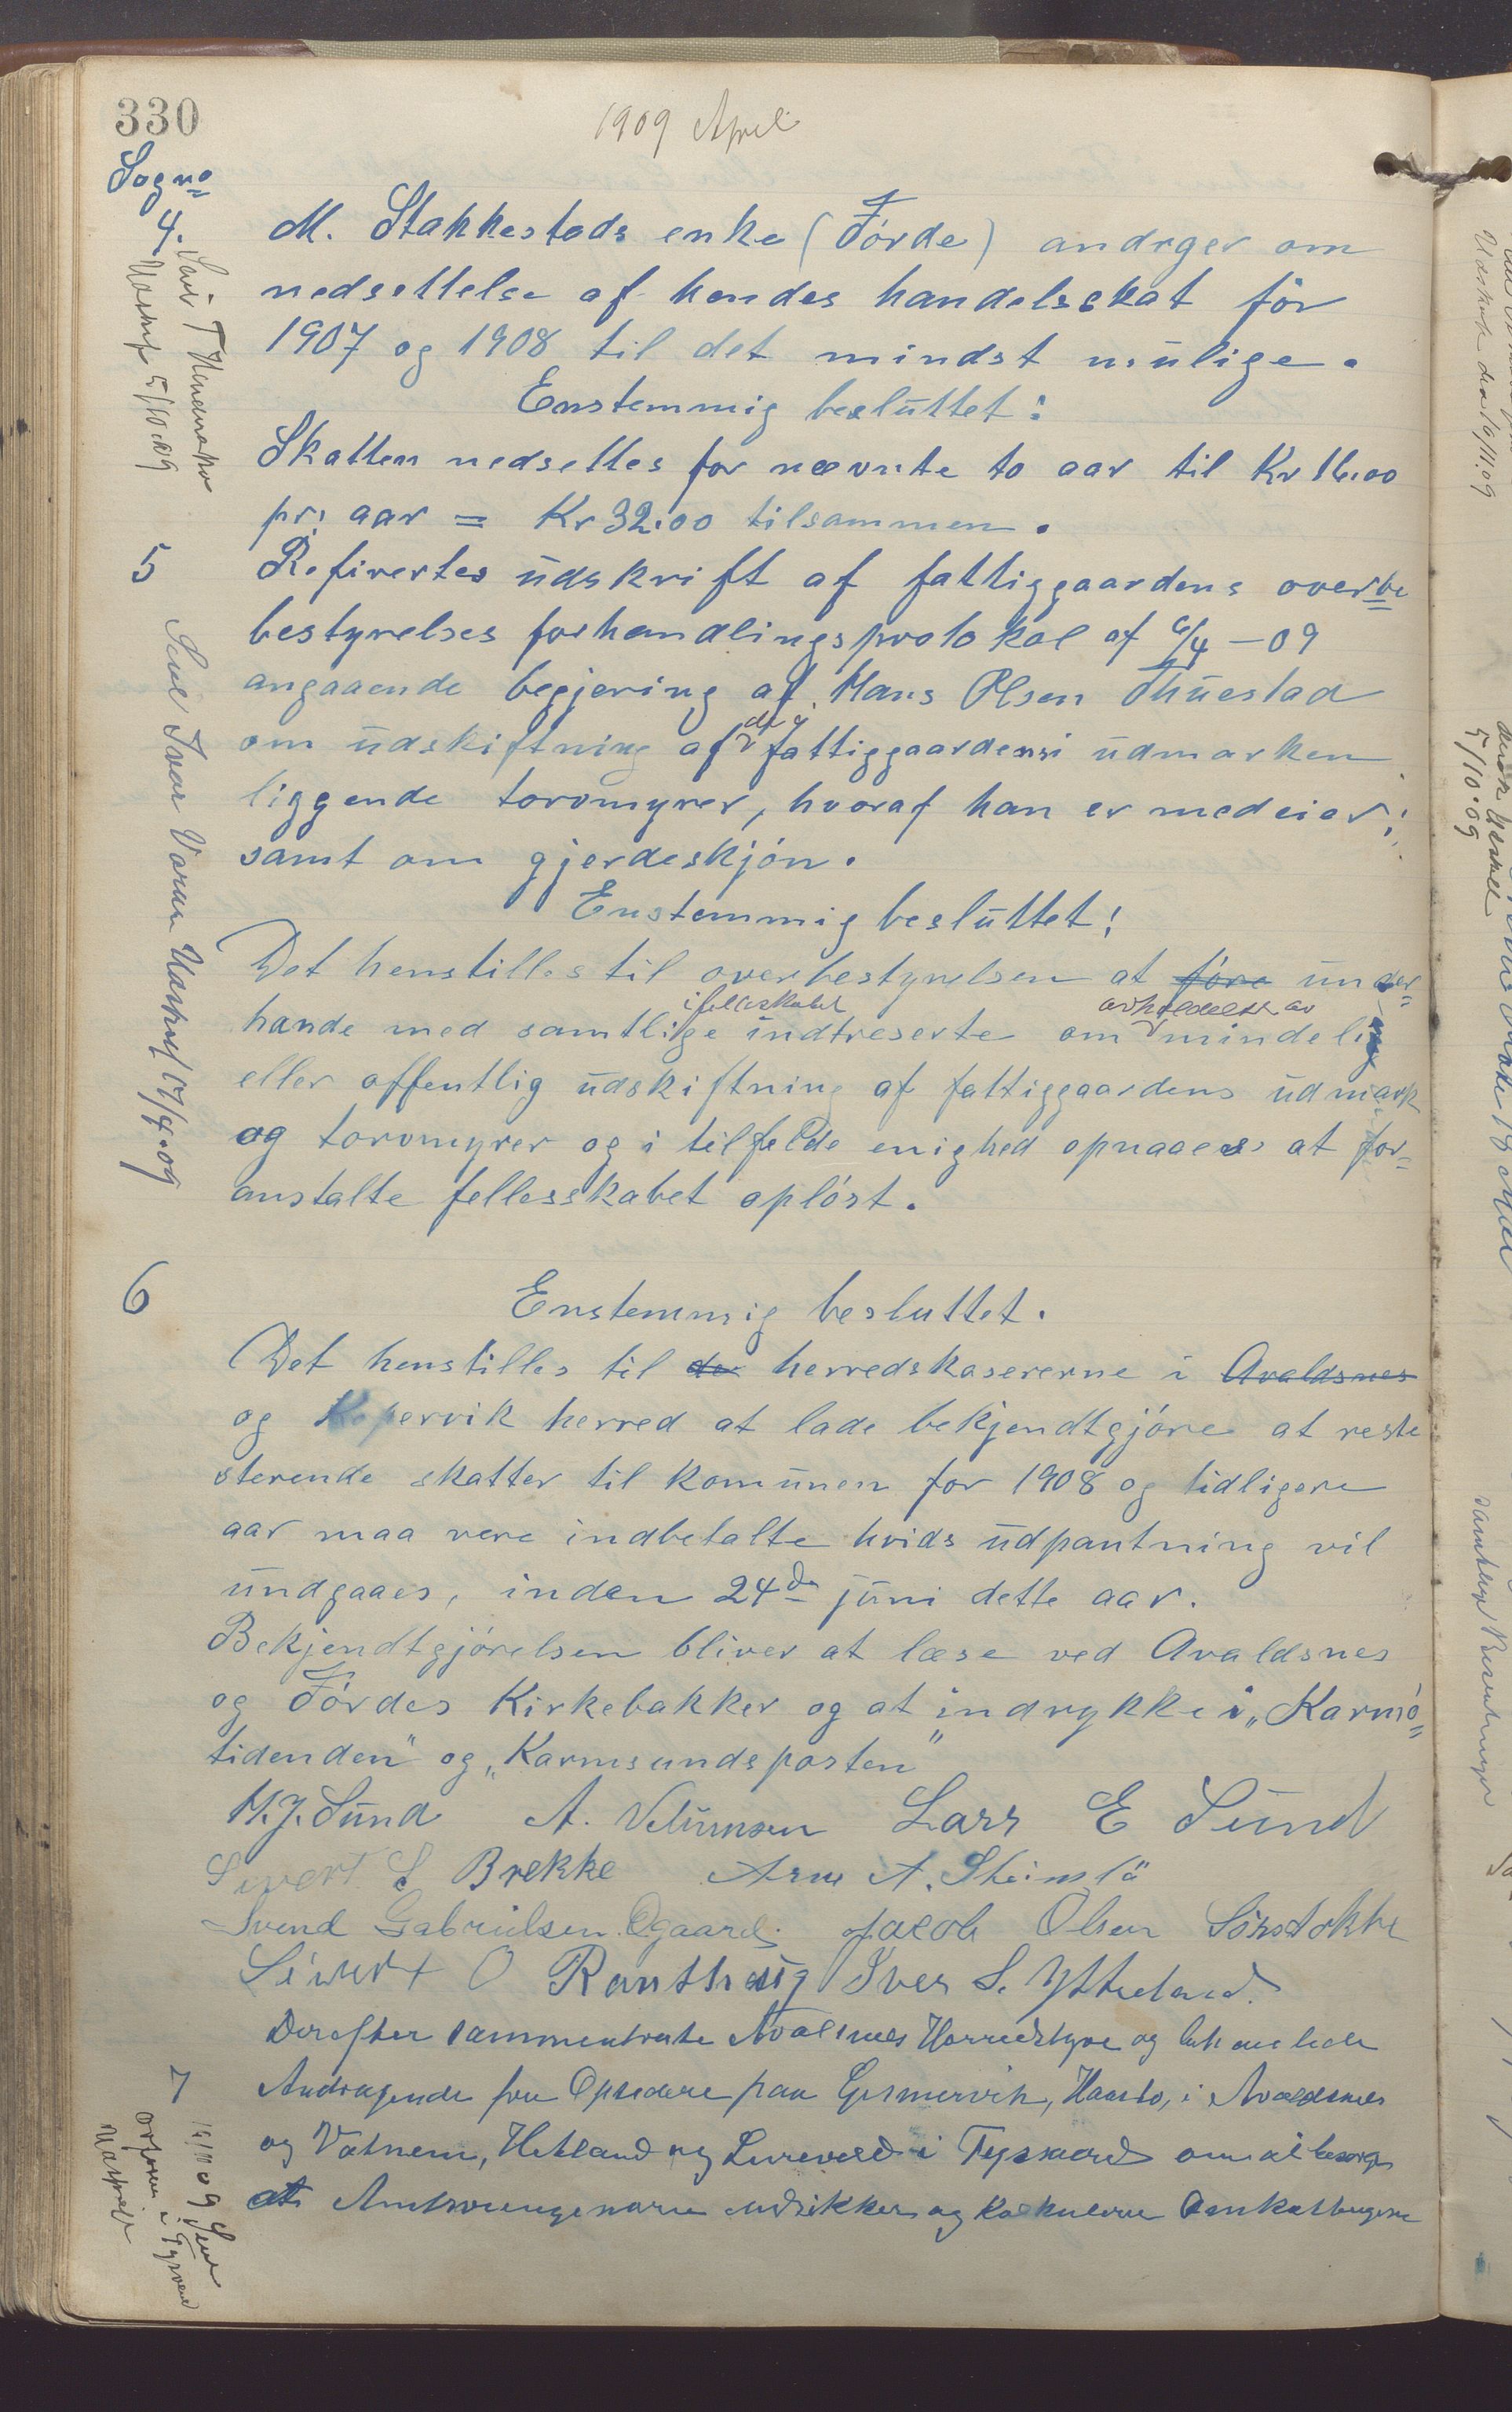 330
1909 April
Sogne
4.
M. Stakkestads enke (Förde) andrger om
nedsettelse af hendes handelsskat för
1907 og 1908 til det mindst mulige.
Enstemmig besluttet:
Skatten nedsettes for nævnte to aar til Kr 16.00
pr. aar = Kr 32.00 tilsammen.
Uaskrif 5/10.09
5
Refirertes udskrift af fattiggaardens overbe
bestyrelses forhandlingsprotokol af 6/4 - 09
angaaende begjering af Hans Olsen Thuestad
om udskiftning af de i fattiggaardens udmarken
liggende torvmyrer, hvoraf han er medeier;
samt om gjerdeskjön.
Enstemmig besluttet:
Det henstilles til overbestyrelsen at före under=
hande med samtlige i felleskabet indtreserte om avholdelse av mindelig
eller offentlig udskiftning af fattiggaardens udmark
og torvmyrer og i tilfelde enighed opnaaes at for=
anstalte fellesskabet oplöst.
Send Ivar Varen Uaskrif 17/4.09
6
Enstemmig besluttet.
Det henstilles til de herredskasererne i Avaldsnes
og Kopervik herred at lade bekjendtgjöre at reste
sterende skatter til komunen for 1908 og tidligere
aar maa vere indbetalte hvids udpantning vil
undgaaes, inden 24de juni dette aar.
Bekjendtgjörelsen bliver at læse ved Avaldsnes
og Fördes Kirkebakker og at indrykke i „Karmö=
tidenden" og „Karmsundsposten"
K. J. Sund A. Velumsen Lars E Sund
Sivert S Brekke Arne A. Steinslö
Svend Gabrielsen Ögaard. Jacob Olsen Sörstokke
Sivert O Ranthaug Iver S. Ytreland.
Derefter sammentraate Avalsnes Herredstyre og
7
Andragende fra Opsidere paa Gismervik, Haasto, i Avaldsnes
og Vatnem, Hetland og i Tysvær om at besörge
at Amtsveungenørn
19/11 09 Send
ordforer i Tysvær
Uaskrift